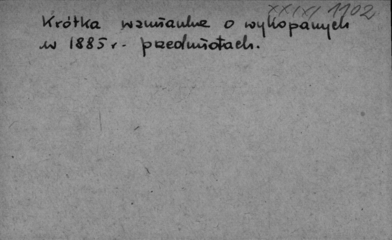 XXXIX 1102
Krótka wzmianka o wykopanych
w 1885 r. przedmiotach.